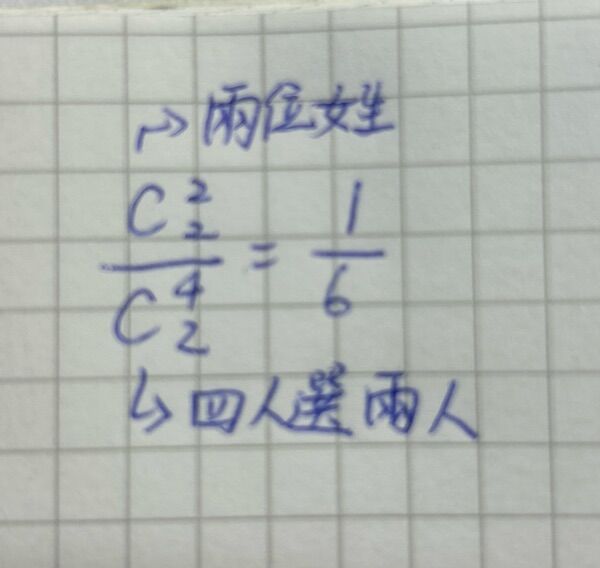 ↱ 兩位女生
C²₂ / C⁴₂ = 1/6
↳ 四人選兩人